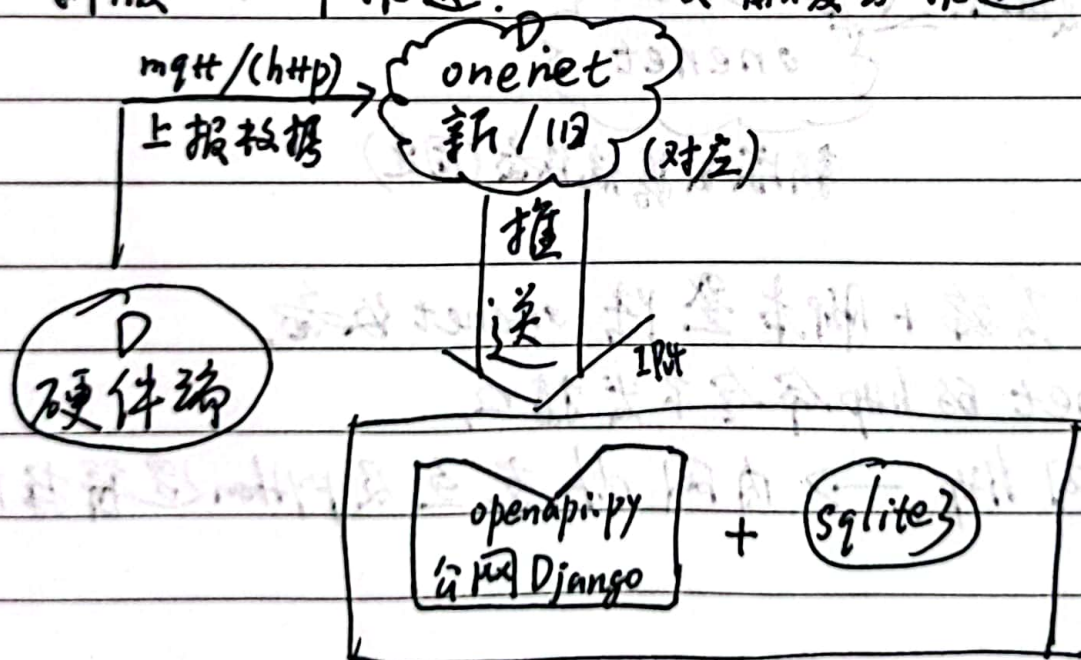 mqtt/(http)
上报数据
D
onenet
新/旧
(对应)
推
送
IPV4
D
硬件端
openapi.py
公网Django
+
sqlite3